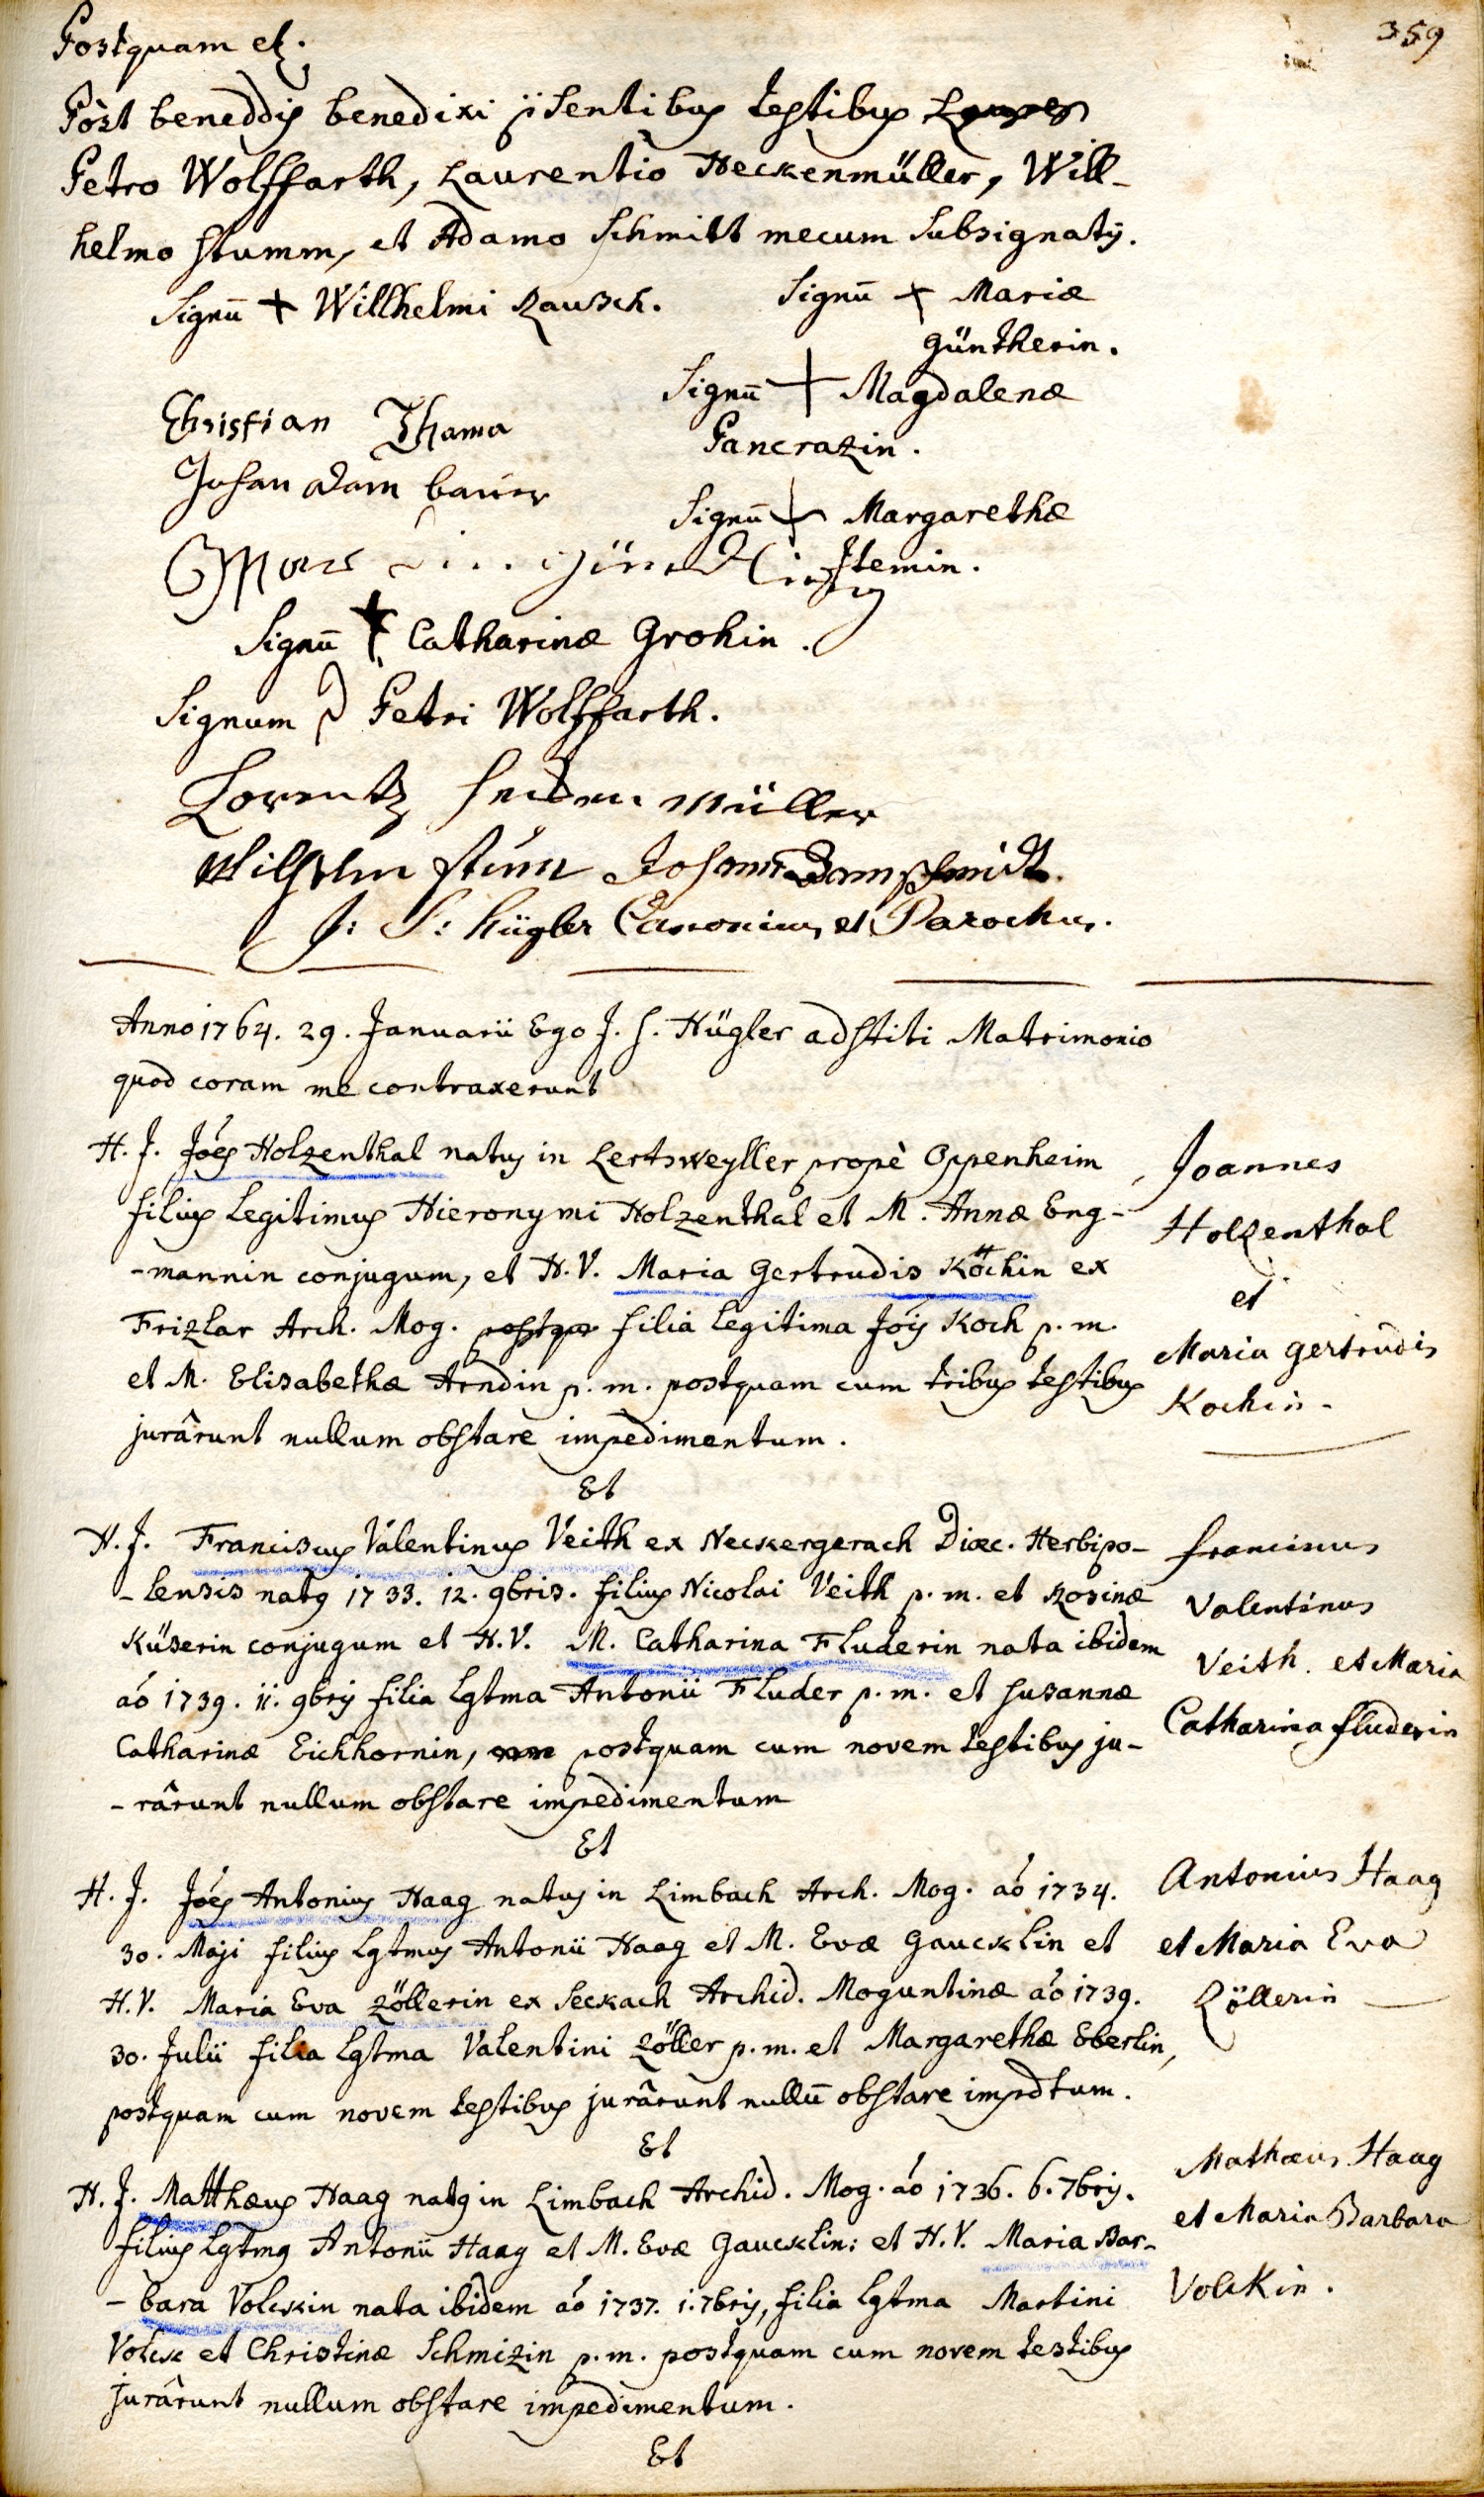 359
Postquam etc.
Post beneddis benedixi pṡentibus testibus
Petro Wolffarth, Laurentio Heckenmüller, Will-
helmo Stumm, et Adamo Schmitt mecum subsignatis.
Signū + Willhelmi Rausch.
Signū + Mariæ
Güntherin.
Signū + Magdalenæ
Pancrazin.
Christian Thama
Johan adam bauer
Signū + Margarethæ
Itemin.
Signū + Catharinæ Grohin.
Signum Petri Wolffarth.
Lorentz müller
Wilhelm stum Johann Dam schmidt.
J: S: hügler Canonicus et Parochus.
Anno 1764. 29. Januarii Ego J. S. Hügler adstiti Matrimonio
quod coram me contraxerunt
H. J. Jóes Holzenthal natus in Lertsweyller propè Oppenheim
filius legitimus Hieronymi Holzenthal et M. Annæ Eng-
-mannin conjugum, et H. V. Maria Gertrudis Köchin ex
Frizlar Arch. Mog. postqu filia legitima Jois Koch p. m.
et M. Elisabetha Arndin p. m. postquam cum tribus testibus
jurârunt nullum obstare impedimentum.
Joannes
Holzenthal
et
Maria gertrudis
Kochin-
Et
H. J. Franciscus Valentinus Veith ex Neckergerach Diœc. Herbipo-
-lensis natus 1733. 12. 9bris. filius Nicolai Veith p. m. et Rosinæ
Küserin conjugum et H. V. M. Catharina Fluderin nata ibidem
aó 1739. 11. 9bris filia lgtma Antonii Fluder p. m. et Susannæ
Catharinæ Eichhornin, postquam cum novem testibus ju-
-rârunt nullum obstare impedimentum
franciscus
Valentinus
Veith. et Maria
Catharina fluderin
Et
H. J. Jóes Antonius Haag natus in Limbach Arch. Mog. aó 1734.
30. Maji filius lgtmus Antonii Haag et M. Evæ Gaucklin et
H. V. Maria Eva Zöllerin ex Seckach Archid. Moguntinæ aó 1739.
30. Julii filia lgtma Valentini Zöller p. m. et Margarethæ Eberlin,
postquam cum novem testibus jurârunt nullū obstare impdtum.
Antonius Haag
et Maria Eva
Zöllerin
Et
H. J. Matthæus Haag natus in Limbach Archid. Mog. aó 1736. 6. 7bris.
filius lgtmus Antonii Haag et M. Evæ Gaucklin: et H. V. Maria Bar-
-bara Volckin nata ibidem aó 1737. 1. 7bris, filia lgtma Martini
Volck et Christinæ Schmizin p. m. postquam cum novem testibus
jurârunt nullum obstare impedimentum.
Mathæus Haag
et Maria Barbara
Volckin.
Et